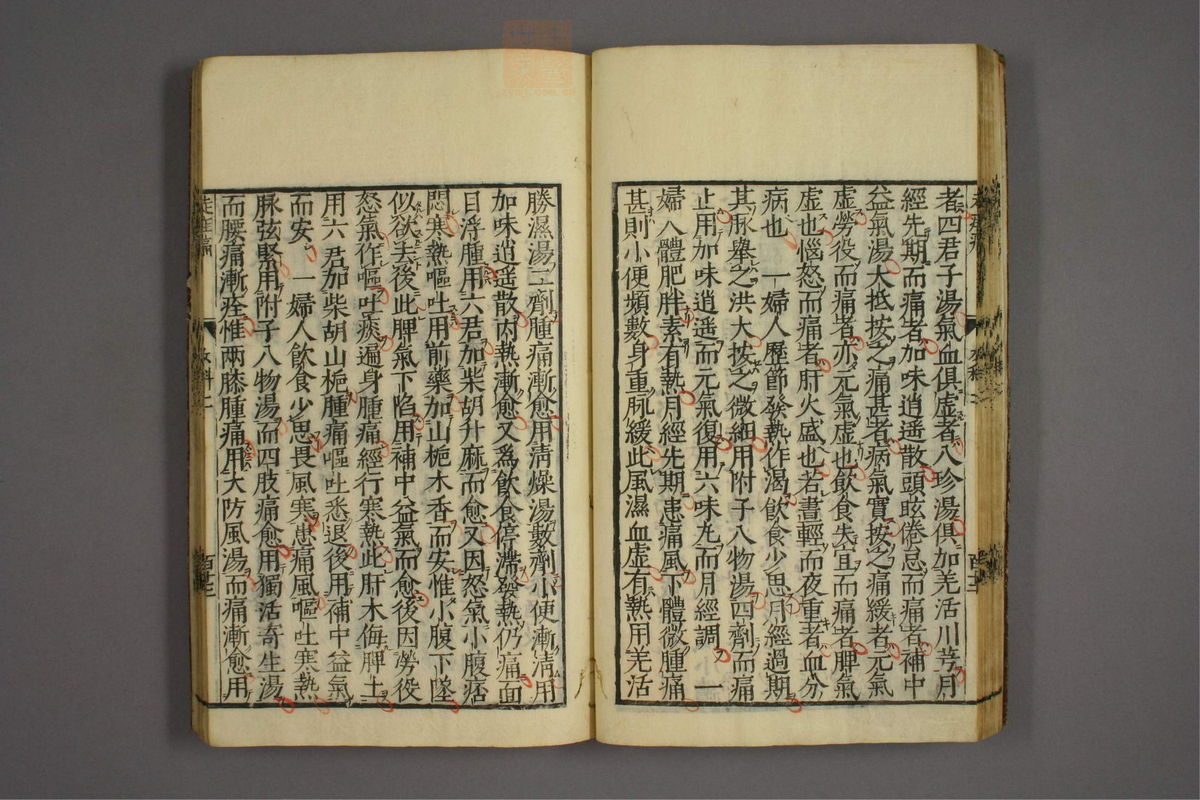 者四君子湯氣血俱虚者八珍湯俱加羌活川芎月
經先期而痛者加味逍遥散頭眩倦怠而痛者補中
益氣湯大抵按之痛甚者病氣實按之痛緩者元氣
虚勞役而痛者亦元氣虚也飲食失宜而痛者脾氣
虚也惱怒而痛者肝火盛也若晝輕而夜重者血分
病也 一婦人歷節發熱作渴飲食少思月經過期
其脉舉之洪大按之微細用附子八物湯四劑而痛
止用加味逍遥而元氣復用六味丸而月經調 一
婦人體肥胖素有熱月經先期患痛風下體微腫痛
甚則小便頻數身重脉緩此風濕血虚有熱用羌活
勝濕湯二劑腫痛漸愈用清燥湯數劑小便漸清用
加味逍遥散内熱漸愈又爲飲食停滯發熱仍痛面
目浮腫用六君加柴胡升麻而愈又因怒氣小腹痞
悶寒熱嘔吐用前藥加山梔木香而安惟小腹下墜
似欲去後此脾氣下陷用補中益氣而愈後因勞役
怒氣作嘔吐痰遍身腫痛經行寒熱此肝木侮脾土
用六君加柴胡山梔腫痛嘔吐悉退後用補中益氣
而安 一婦人飲食少思畏風寒患痛風嘔吐寒熱
脉弦緊用附子八物湯而四肢痛愈用獨活寄生湯
而腰痛漸痊惟兩膝腫痛用大防風湯而痛漸愈用